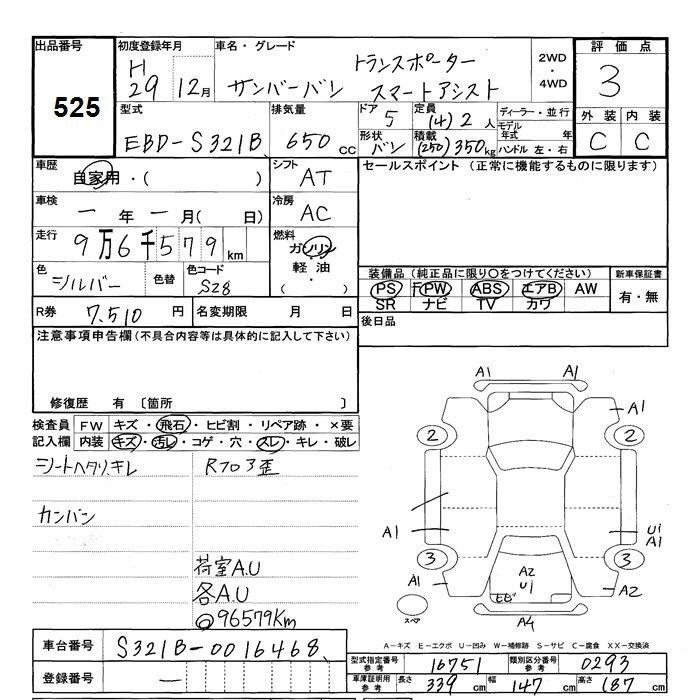 出品番号 525
初度登録年月 H29 12月
車名・グレード サンバーバン トランスポーター スマートアシスト
2WD・4WD
評価点 3
外装 C 内装 C
型式 EBD-S321B
排気量 650 cc
ドア 5
形状 バン
定員 (4) 2 人
積載 (250) 350 kg
ディーラー・並行
モデル年式 年
ハンドル 左・右
車歴 自家用・( )
シフト AT
車検 ー 年 ー 月( 日)
冷房 AC
走行 9万6千579 km
燃料 ガソリン・軽油 ( )
色 シルバー 色替 色コード S28
R券 7,510 円 名変期限 月 日
セールスポイント (正常に機能するものに限ります)
装備品 (純正品に限り○をつけてください)
PS PW ABS エアB AW
SR ナビ TV カワ
新車保証書 有・無
後日品
注意事項申告欄 (不具合内容等は具体的に記入して下さい)
修復歴 有 〔箇所 〕
検査員記入欄
FW キズ・飛石・ヒビ割・リペア跡・×要
内装 キズ・汚レ・コゲ・穴・スレ・キレ・破レ
シートヘタリ.キレ
カンバン
Rフロア歪
荷室A.U
各A.U
◎96579Km
車台番号 S321B-0016468
登録番号 ー
A1 A1
A1
2 2
A1 U1
A1
3 3
A1 A2 U1 A2
ヒビ
スペア A4
A-キズ E-エクボ U-凹み W-補修跡 S-サビ C-腐食 XX-交換済
型式指定番号 参考 16751 類別区分番号 参考 0293
車庫証明用 参考 長さ 339 cm 幅 147 cm 高さ 187 cm